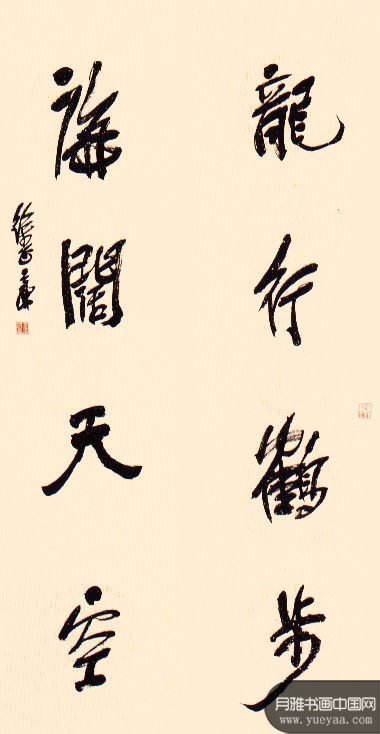 龍行鶴步
海闊天空
月雅书画中国网
www.yueyaa.com